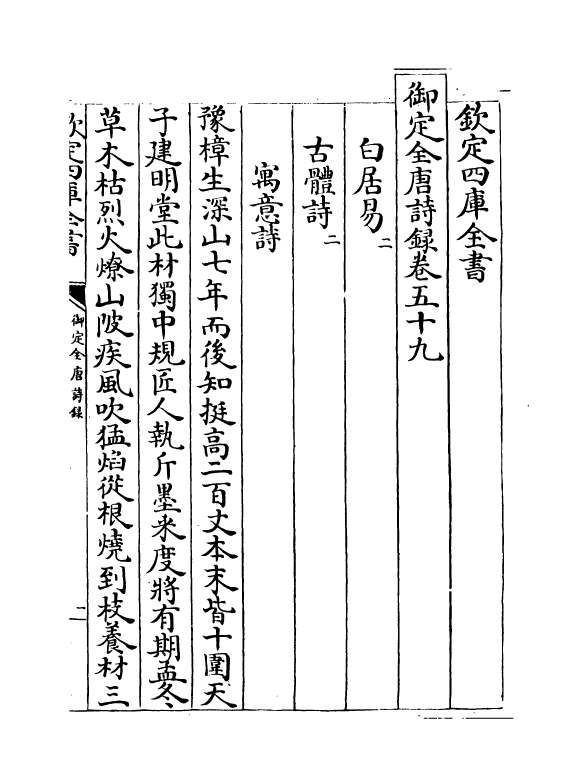 欽定四庫全書
御定全唐詩録卷五十九
白居易二
古體詩二
寓意詩
豫樟生深山七年而後知挺高二百丈本末皆十圍天
子建明堂此材獨中規匠人執斤墨采度將有期孟冬
草木枯烈火燎山陂疾風吹猛焰從根燒到枝養材三
欽定四庫全書
御定全唐詩録
二